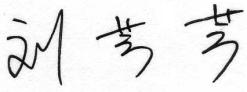 刘芳芳